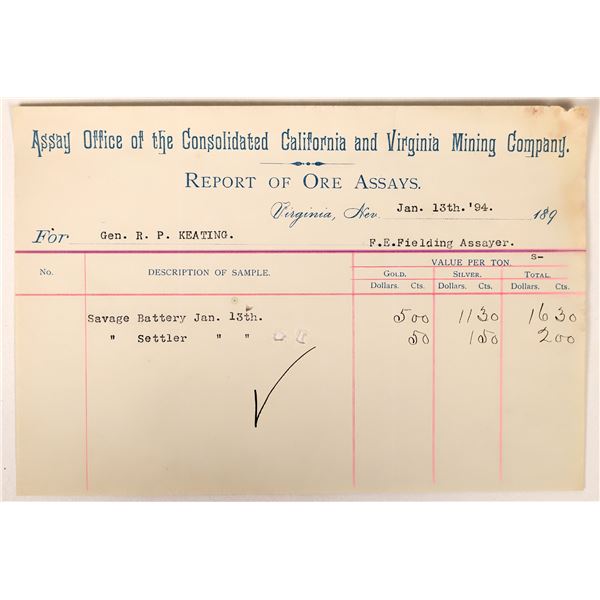 Assay Office of the Consolidated California and Virginia Mining Company.
REPORT OF ORE ASSAYS.
Virginia, Nev. Jan. 13th.'94. 189
For Gen. R. P. KEATING. F.E.Fielding Assayer.
VALUE PER TON. S-
No. DESCRIPTION OF SAMPLE. GOLD. SILVER. TOTAL.
Dollars. Cts. Dollars. Cts. Dollars. Cts.
Savage Battery Jan. 13th. 5 00 11 30 16 30
" Settler " " 50 1 50 2 00